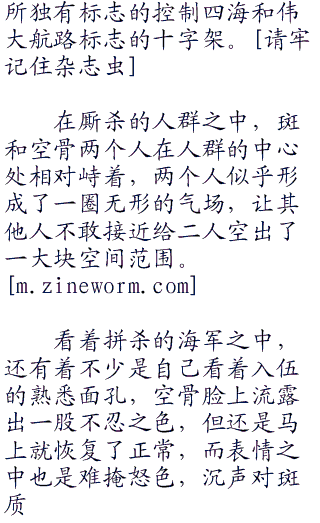 所独有标志的控制四海和伟
大航路标志的十字架。[请牢
记住杂志虫]
在厮杀的人群之中，斑
和空骨两个人在人群的中心
处相对峙着，两个人似乎形
成了一圈无形的气场，让其
他人不敢接近给二人空出了
一大块空间范围。
[m.zineworm.com]
看着拼杀的海军之中，
还有着不少是自己看着入伍
的熟悉面孔，空骨脸上流露
出一股不忍之色，但还是马
上就恢复了正常，而表情之
中也是难掩怒色，沉声对斑
质